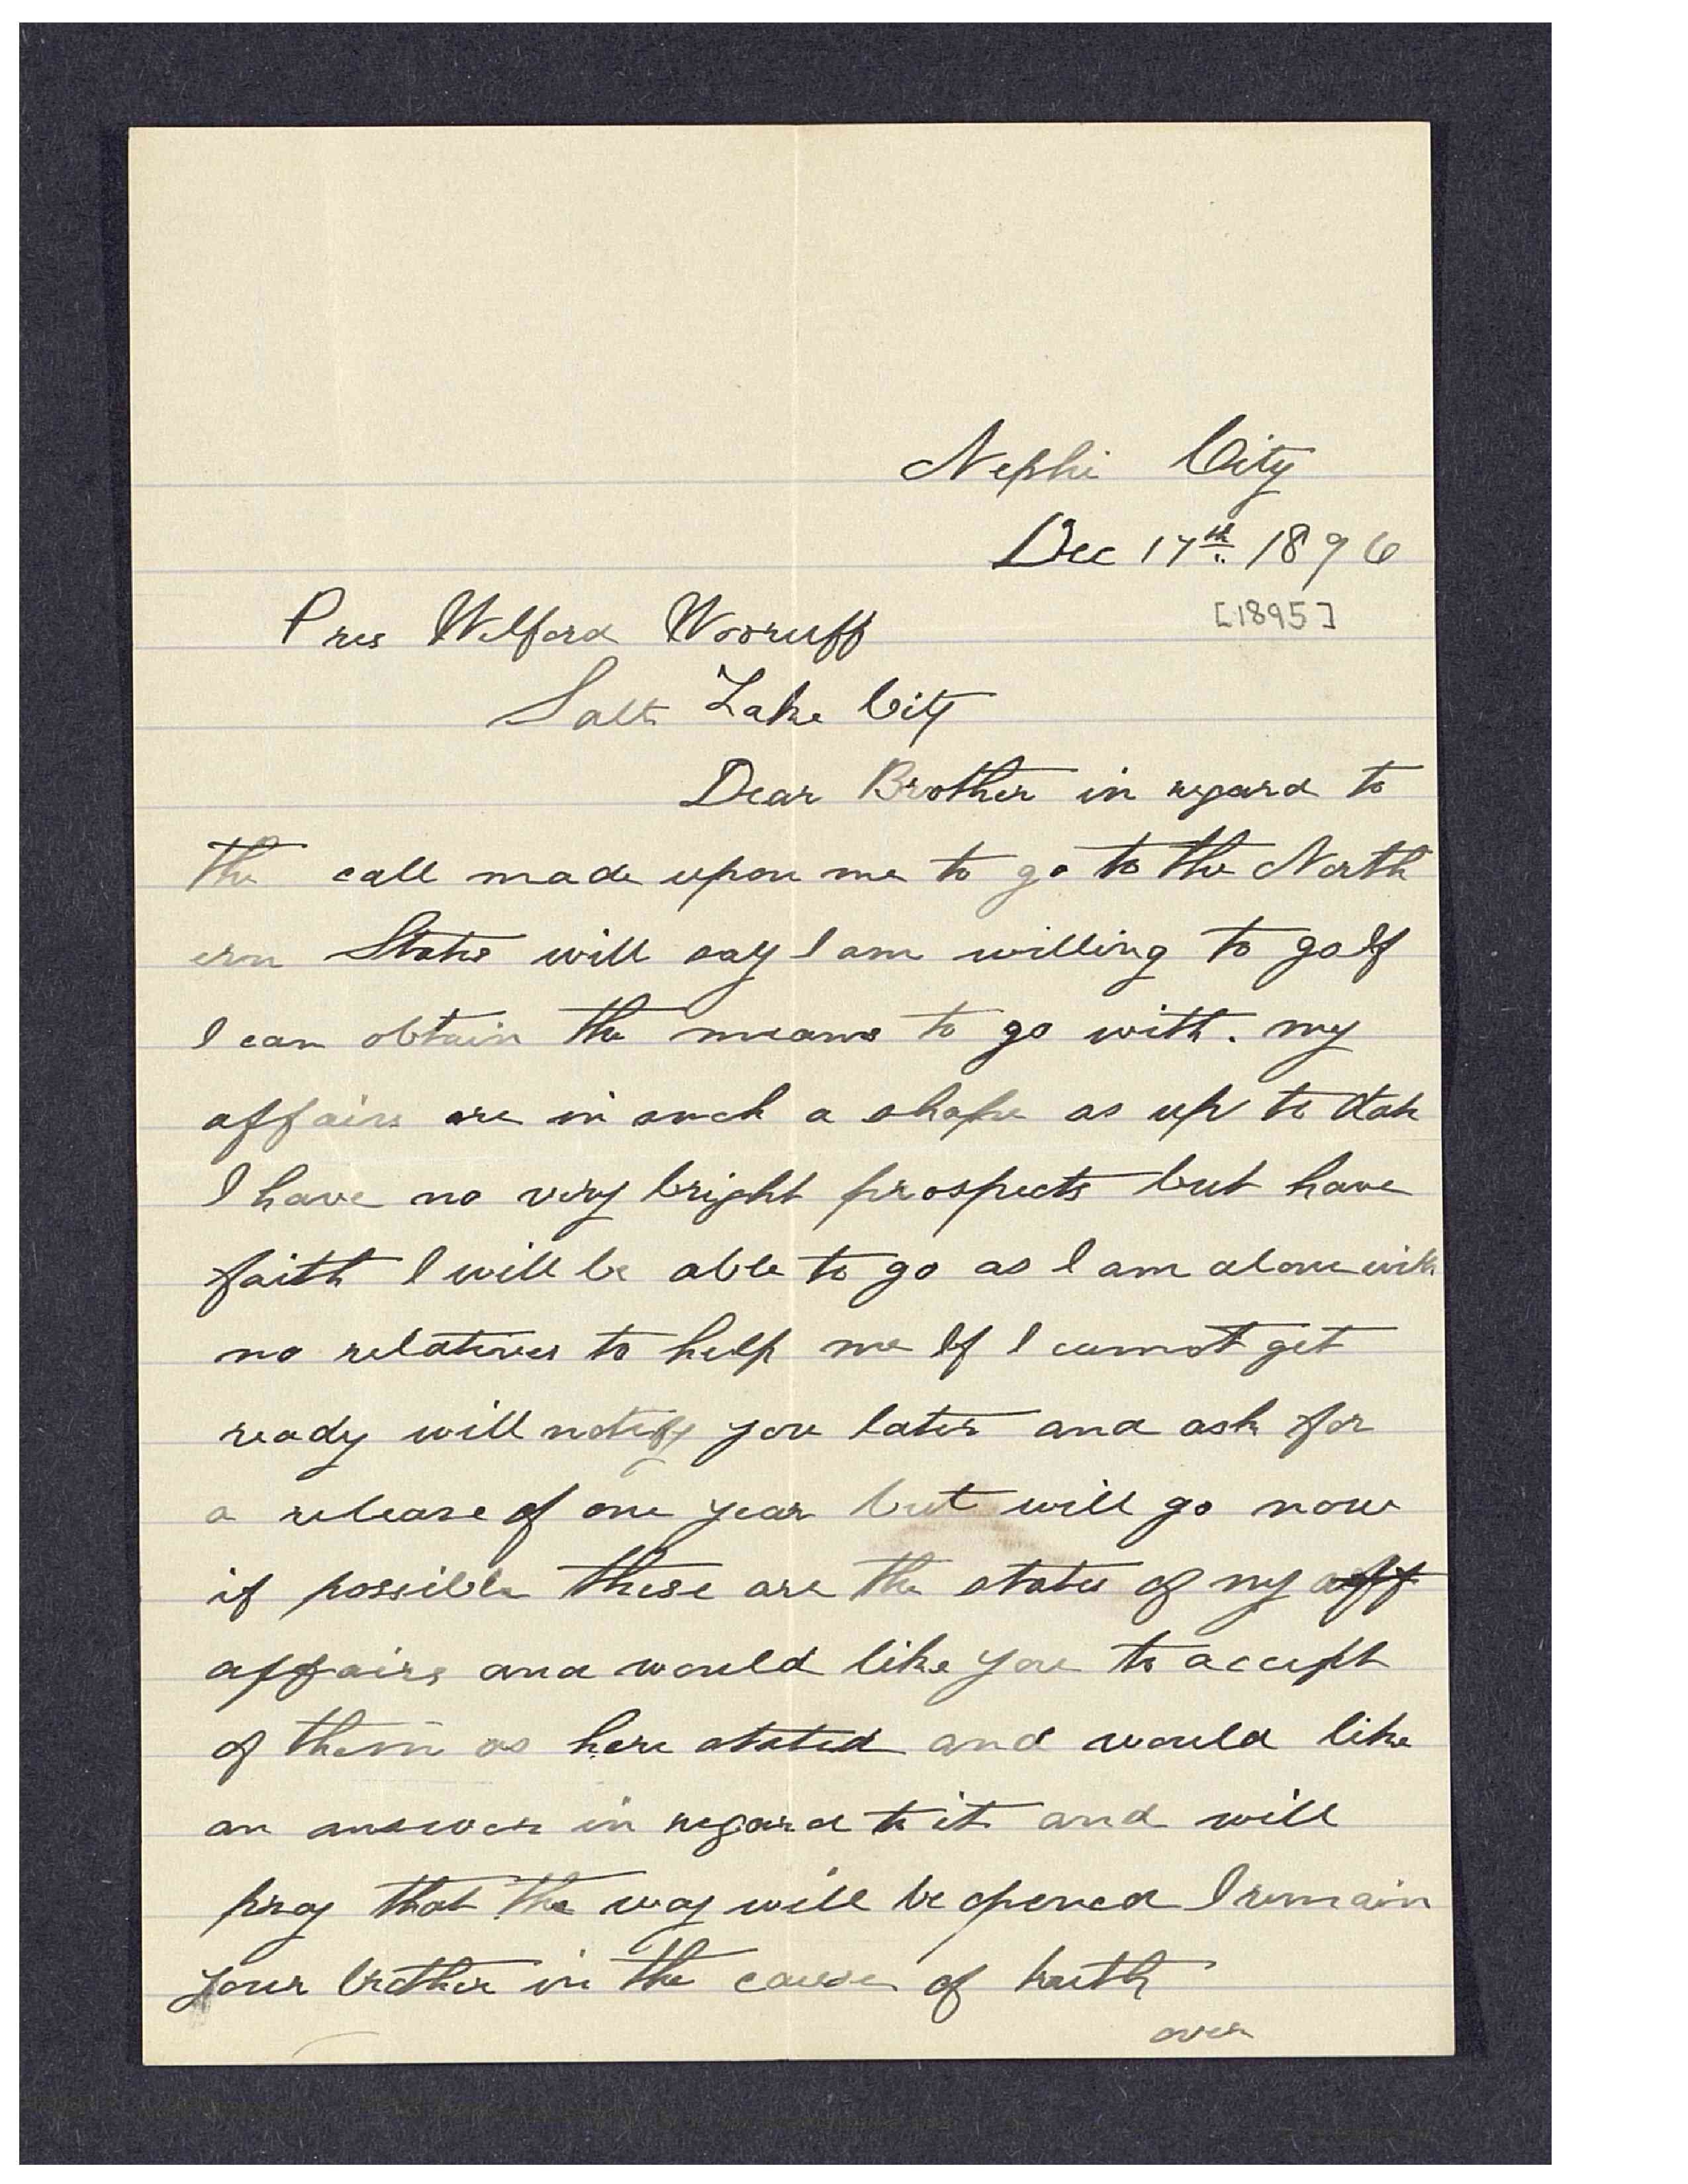 Nephi City
Dec 17th 1896
[1895]
Pres Wilford Wooruff
Salt Lake City
Dear Brother in regard to
the call made upon me to go to the North
ern States will say I am willing to go If
I can obtain the means to go with. my
affairs are in such a shape as up to date
I have no very bright prospects but have
faith I will be able to go as I am alone with
no relatives to help me If I cannot get
ready will notify you later and ask for
a release of one year but will go now
if possible these are the states of my aff
affairs and would like you to accept
of them as here stated and would like
an answer in regard to it and will
pray that the way will be opened I remain
your brother in the cause of truth
over